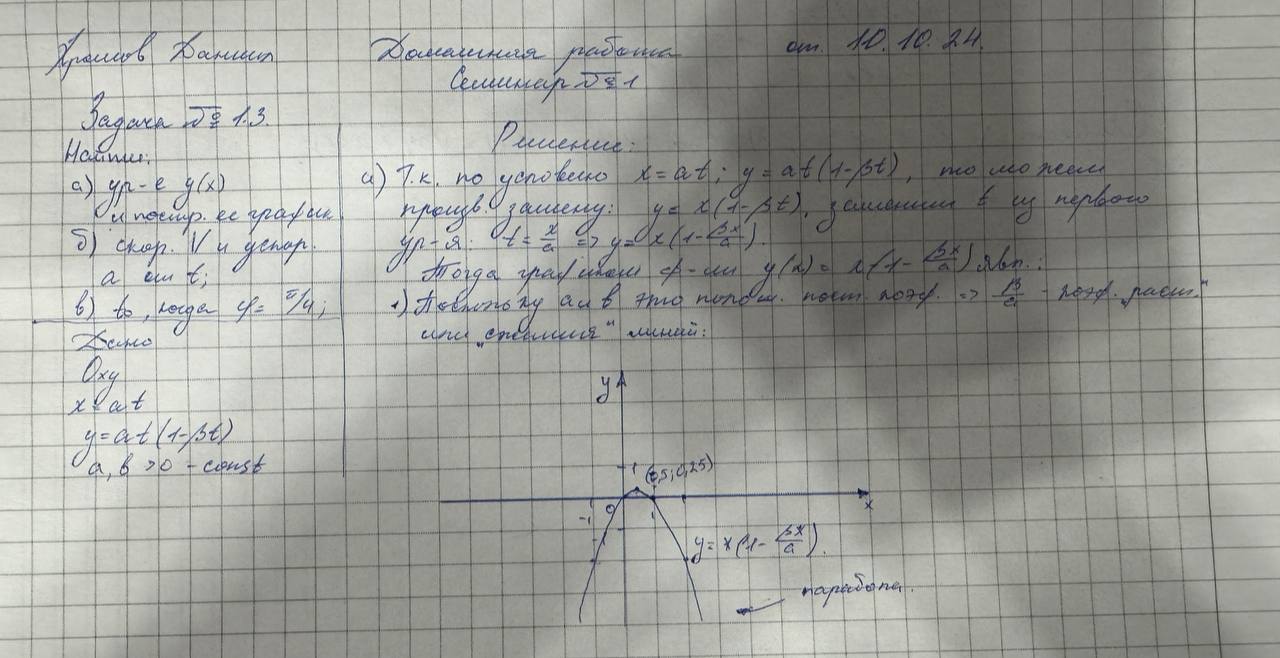 Хромов Даниил Домашняя работа от 10.10.24.
Семинар №1
Задача № 1.3.
Найти:
а) ур-е y(x)
и постр. ее график
б) скор. V и ускор.
a от t;
в) t₀, когда φ = π/4;
Дано
Oxy
x = at
y = at(1-βt)
a, b > 0 - const
Решение:
а) Т.к. по условию x = at; y = at(1-βt), то можем
произв. замену: y = x(1-βt), заменим t из первого
ур-я: t = x/a => y = x(1 - βx/a).
Тогда графиком ф-ии y(x) = x(1 - βx/a) явл.:
1) Поскольку a и b это полож. пост. коэф. => β/a - коэф. "раст."
или "сжатия" линий:
y
1
(0,5; 0,25)
-1 0 1 x
y = x(1 - βx/a).
парабола.